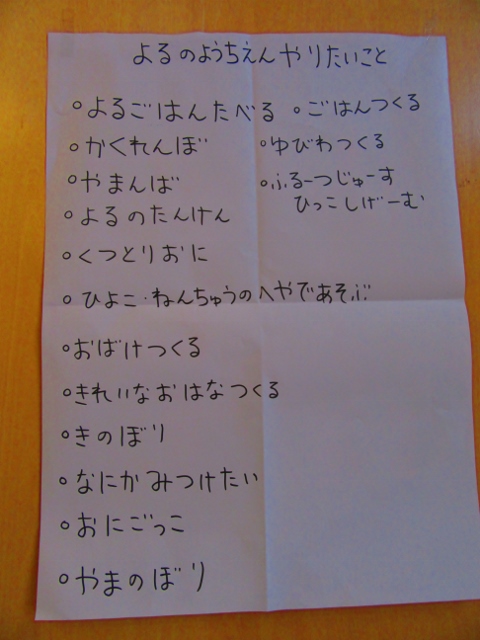 よるのようちえんやりたいこと
○よるごはんたべる ○ごはんつくる
○かくれんぼ ○ゆびわつくる
○やまんば ○ふるーつじゅーす
ひっこしげーむ
○よるのたんけん
○くつとりおに
○ひよこ・ねんちゅうのへやであそぶ
○おばけつくる
○きれいなおはなつくる
○きのぼり
○なにかみつけたい
○おにごっこ
○やまのぼり